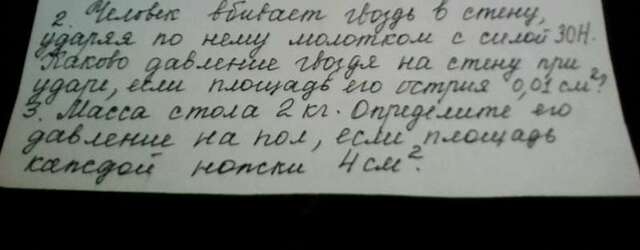 2. Человек вбивает гвоздь в стену,
ударяя по нему молотком с силой 30Н.
Каково давление гвоздя на стену при
ударе, если площадь его острия 0,01 см²?
3. Масса стола 2 кг. Определите его
давление на пол, если площадь
каждой ножки 4 см².